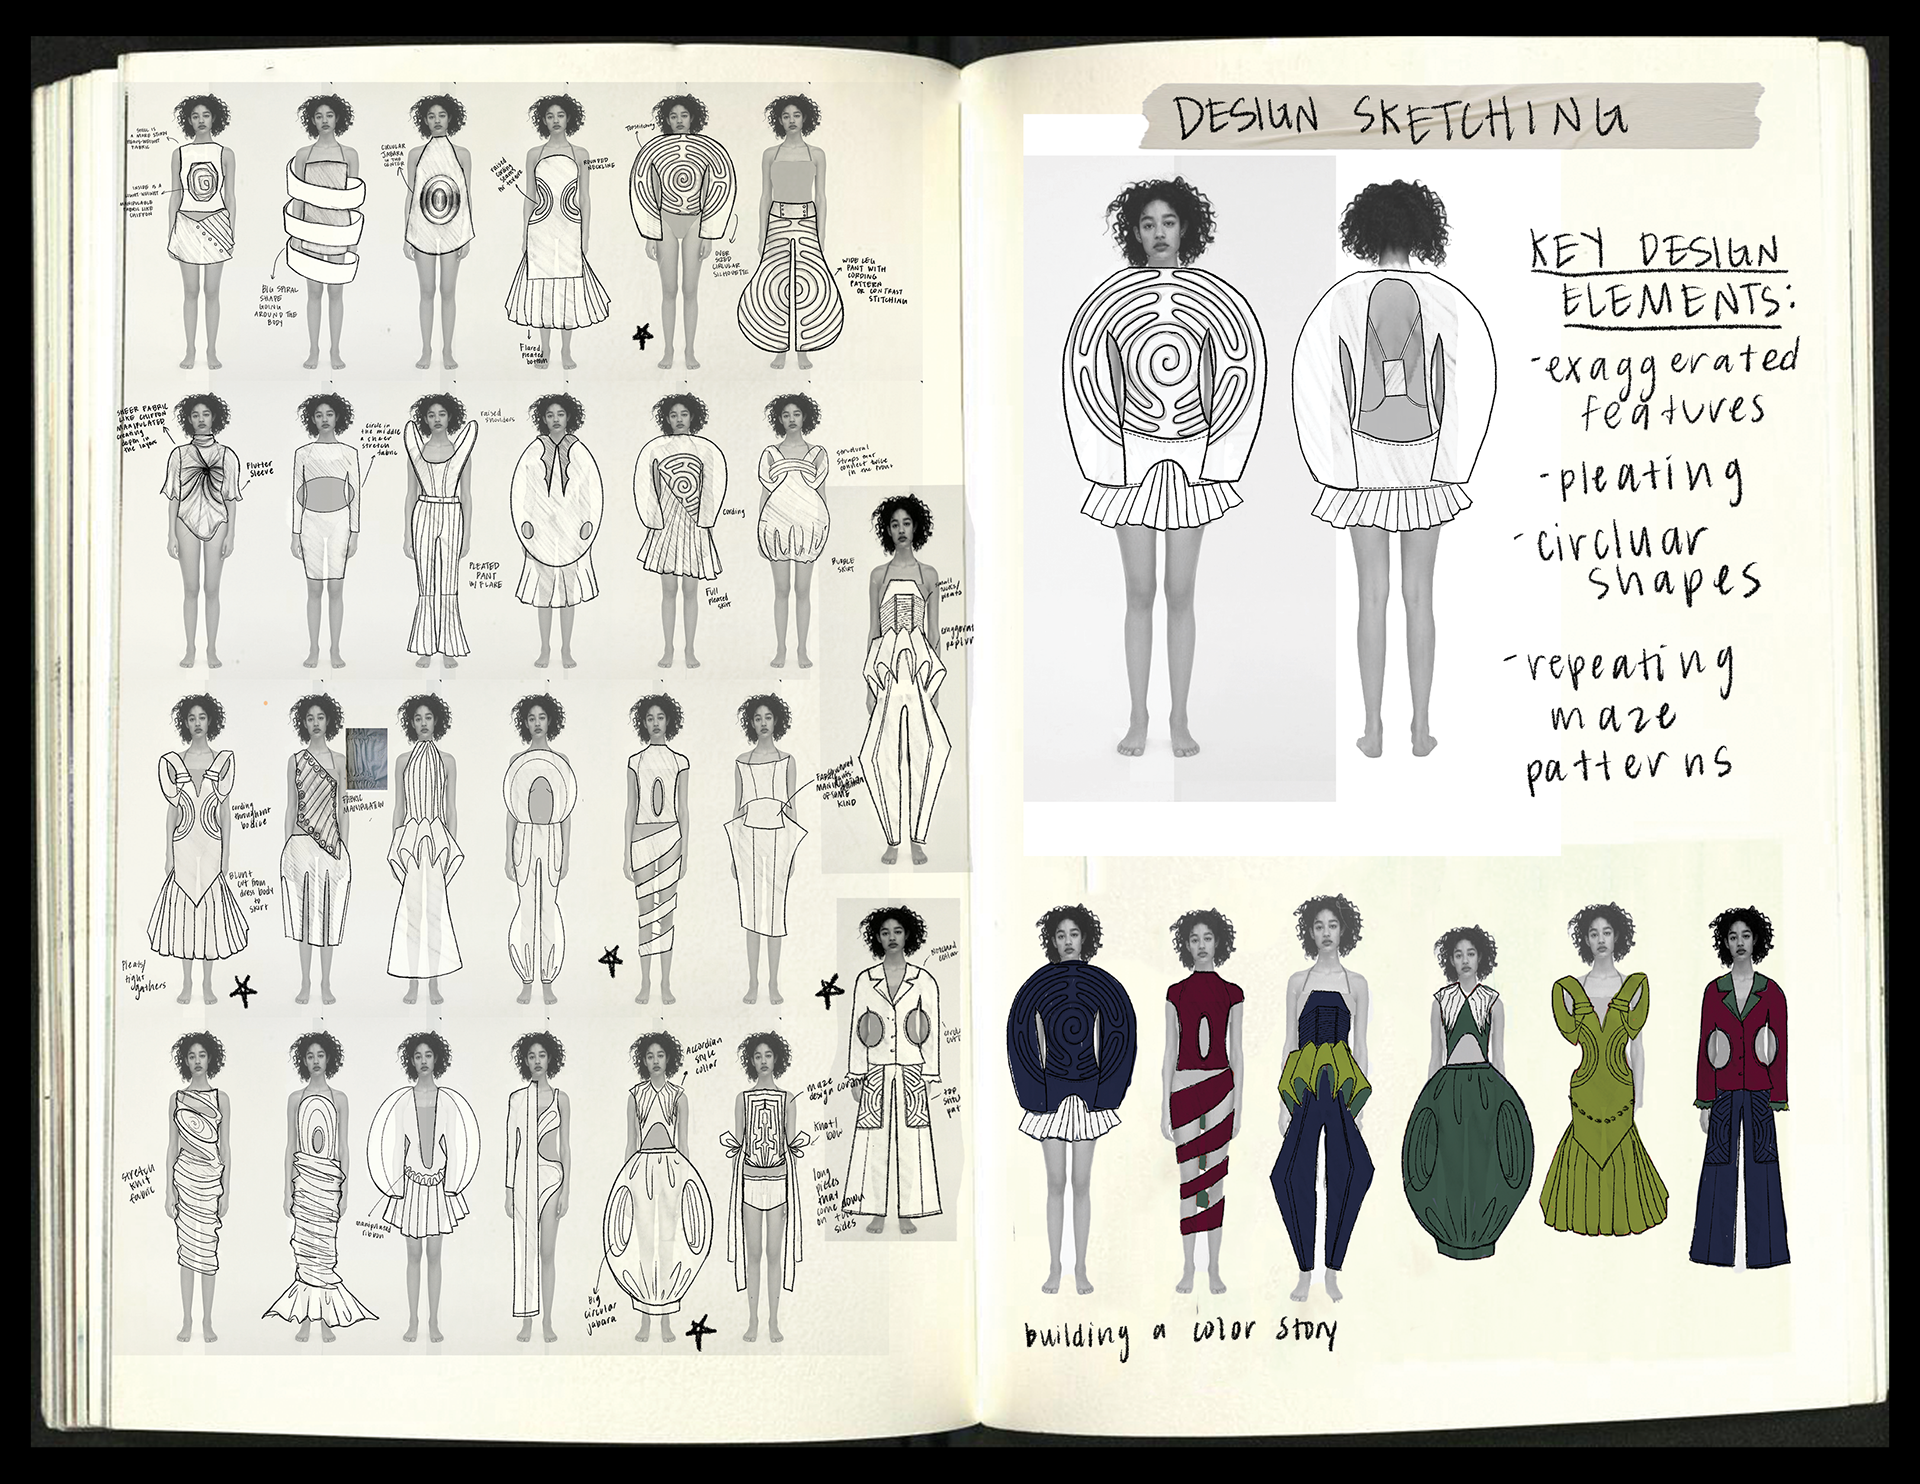 SHELL IS
A MORE STURDY
HEAVY-WEIGHT
FABRIC
INSIDE IS A
LIGHT WEIGHT
MANIPULABLE
FABRIC LIKE
CHIFFON
BIG SPIRAL
SHAPE
GOING
AROUND THE
BODY
CIRCULAR
JABARA
IN THE
CENTER
raised
cording
ROUNDED
NECKLINE
Flared
pleated
bottom
Topstitching
OVER
SIZED
CIRCULAR
SILHOUETTE
WIDE LEG
PANT WITH
CORDING
PATTERN
OR CONTRAST
STITCHING
SHEER FABRIC
LIKE CHIFFON
MANIPULATED
creating
depth in
the layers
Flutter
Sleeve
circle in
the middle
a sheer
stretch
fabric
raised
shoulders
PLEATED
PANT
W/ FLARE
cording
Full
pleated
skirt
structural
straps that
connect twice
in the front
BUBBLE
SKIRT
small
tucks/
pleats
cording
throughout
bodice
Blunt
cut from
dress body
to
skirt
Pleats/
tight
gathers
FABRIC
MANIPULATION
OF SOME
KIND
notched
collar
stretch
knit
fabric
manipulated
ribbon
Accordian
style
collar
Big
circular
jabara
maze
design cording
Knot/
bow
long
pieces
that
come down
on the
sides
DESIGN SKETCHING
KEY DESIGN
ELEMENTS:
-exaggerated
features
-pleating
-circluar
shapes
-repeating
maze
patterns
building a color story